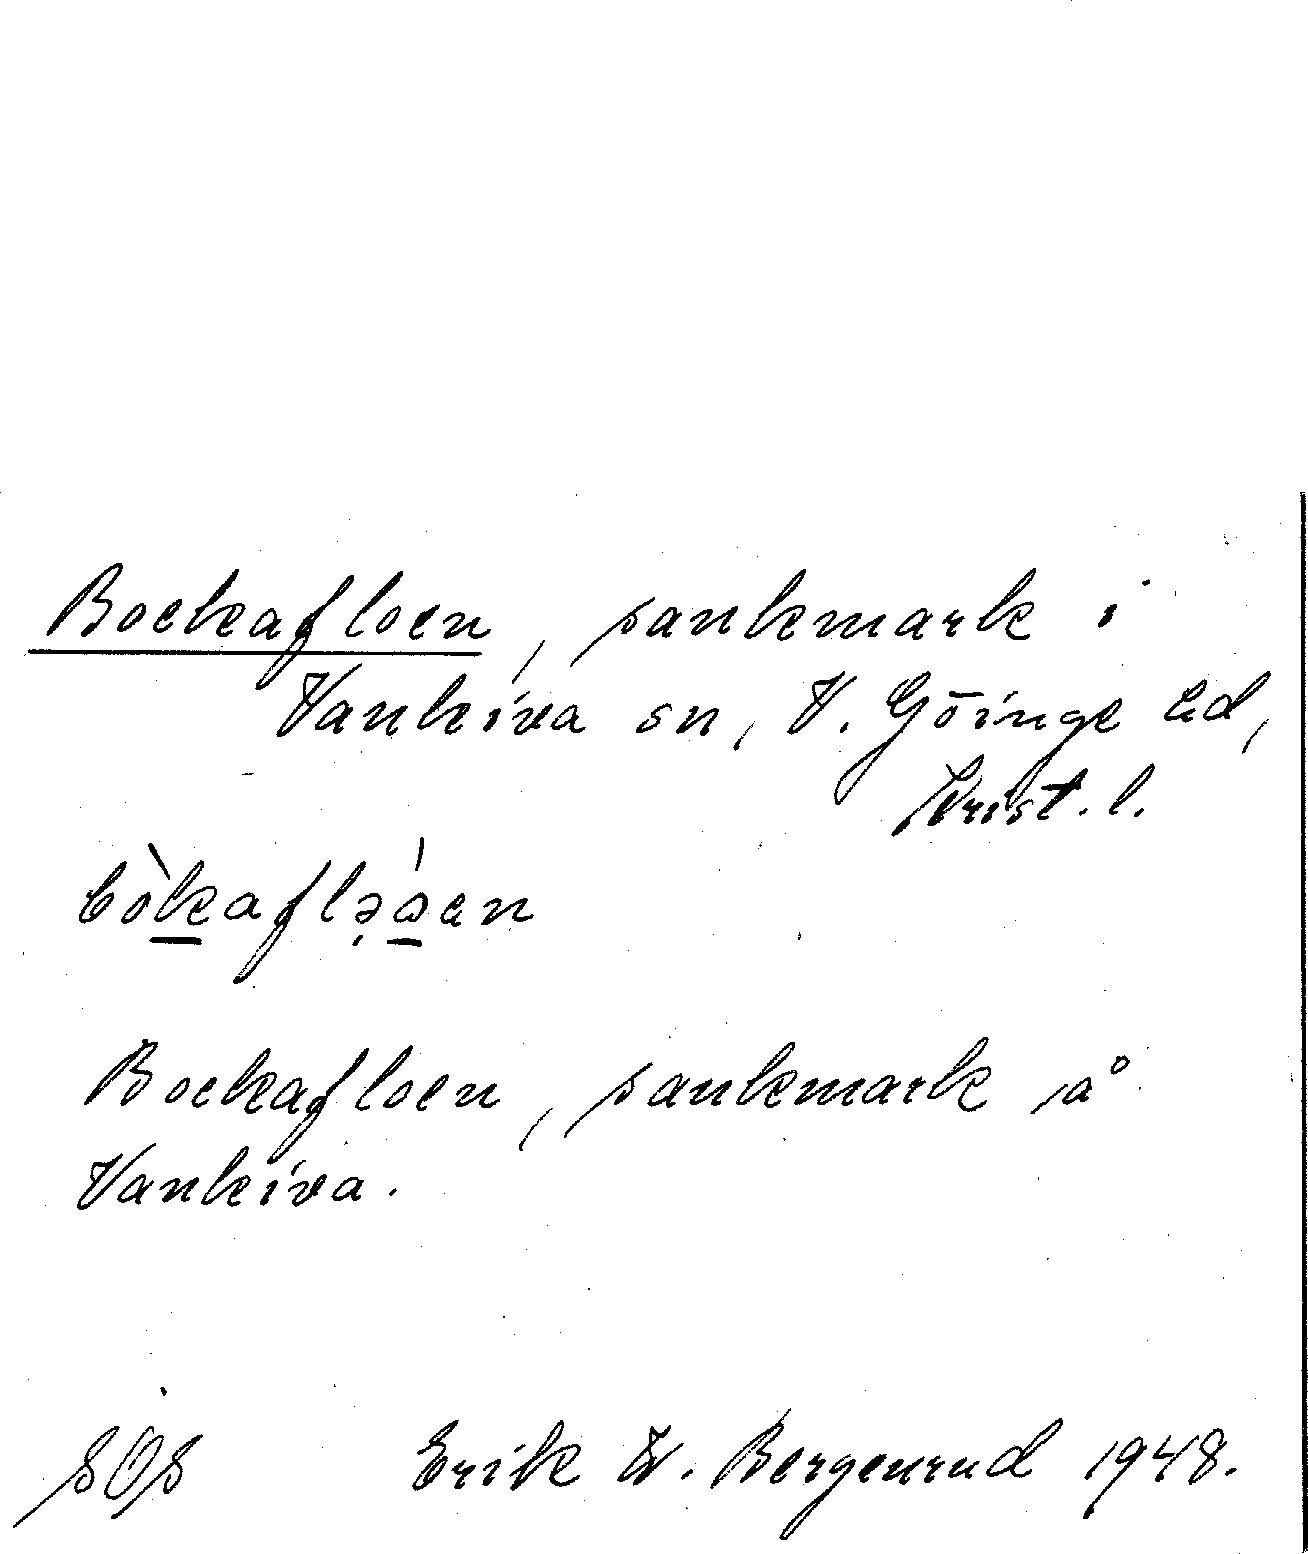 Bockafloen, sankmark i
Vankiva sn, V. Göinge hd,
Krist. l.
Bockafloen, sankmark på
Vankiva.
SOS Erik W. Bergenrud 1948.